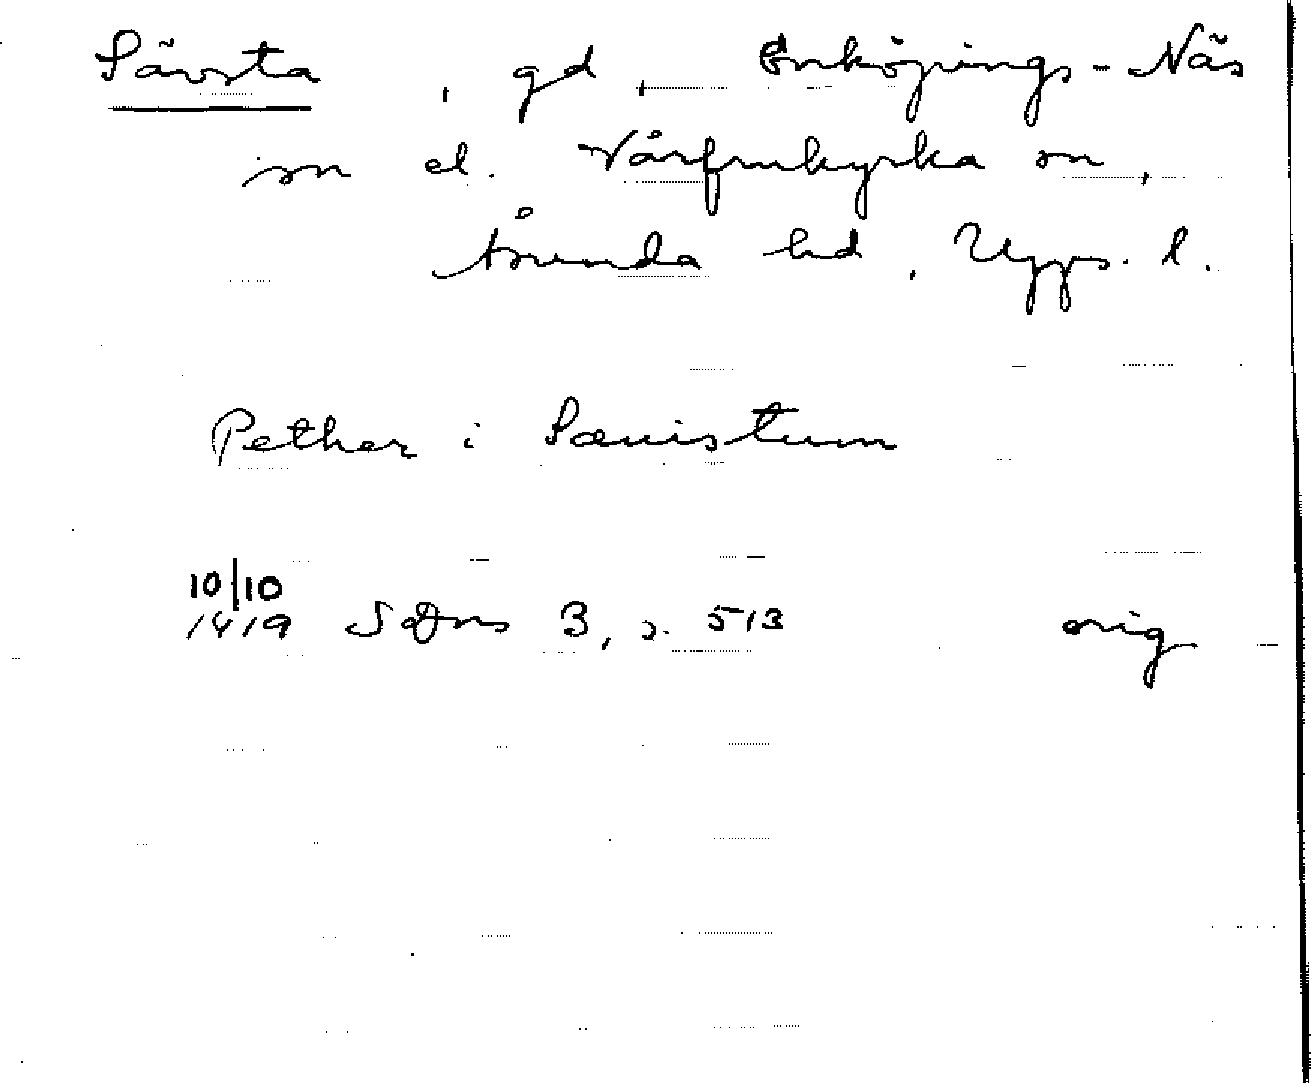 Sävsta, gd, Enköpings-Näs
sn el. Vårfrukyrka sn,
Åsunda hd, Upps. l.
Pethar i Sæuistum
10/10
1419 SDns 3, s. 513 orig